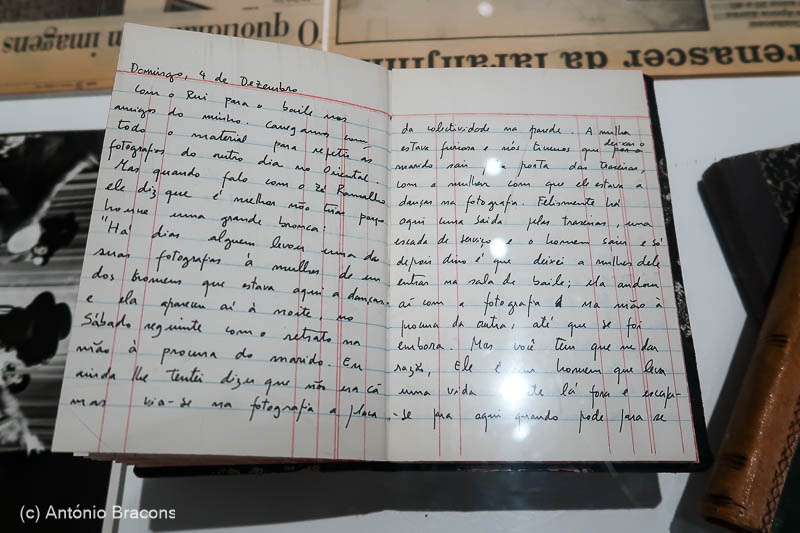 O quotidiano em imagens
renascer da laranjinha
Domingo, 4 de Dezembro
Com o Rui para o baile nos
amigos do minho. Carregamos com
todo o material para repetir as
fotografias do outro dia no Oriental.
Mas quando falo com o Zé Ramalho
ele diz que é melhor não tirar porque
houve uma grande bronca:
"Há dias alguem levou uma das
suas fotografias à mulher de um
dos homens que estava aqui a dançar
e ela apareceu aí à noite, no
Sábado seguinte com o retrato na
mão à procura do marido. Eu
ainda lhe tentei dizer que não era cá
mas via-se na fotografia a placa
da colectividade na parede. A mulher
estava furiosa e nós tivemos que deixar o
marido sair pela porta das traseiras,
com a mulher com que ele estava a
dançar na fotografia. Felizmente há
aqui uma saida pelas traseiras, uma
escada de serviço e o homem saiu e só
depois disso é que deixei a mulher dele
entrar na sala de baile; ela andou
aí com a fotografia na mão à
procura da outra, até que se foi
embora. Mas você tem que me dar
razão, Ele é um homem que leva
uma vida lá fora e escapa-
-se para aqui quando pode para se
(c) António Bracons